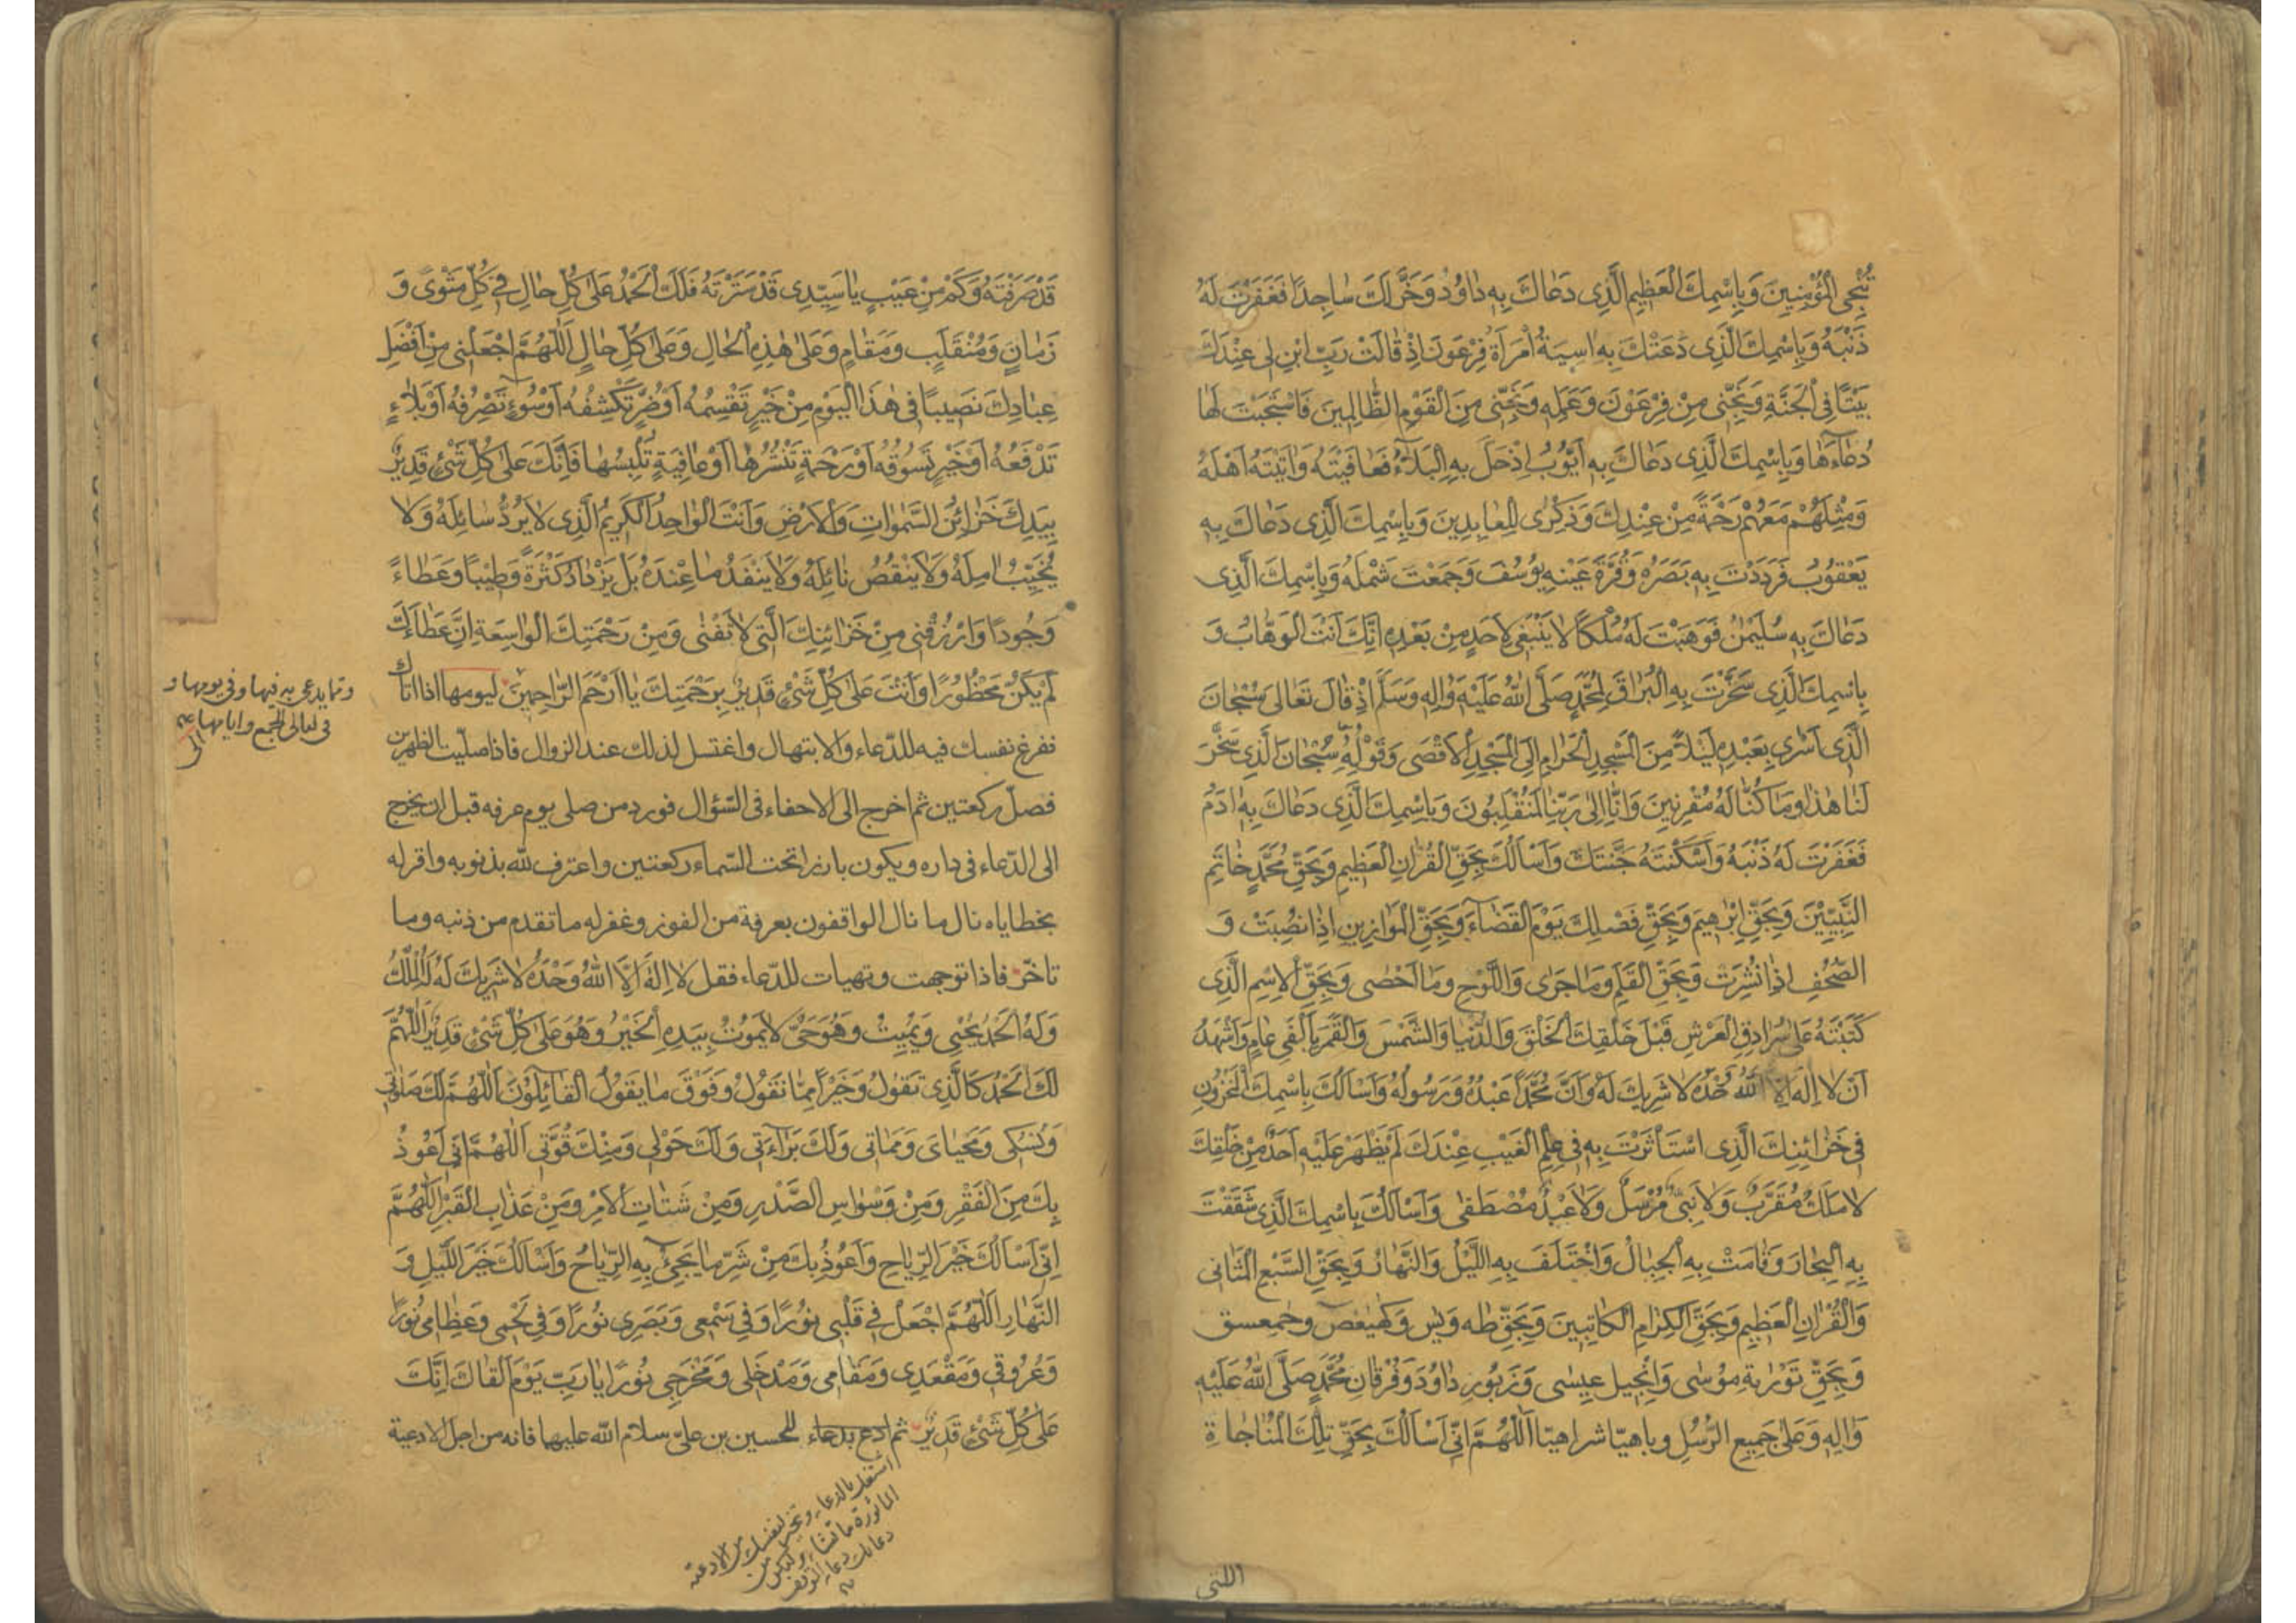 تُنْجِي الْمُؤْمِنِينَ وَبِاسْمِكَ الْعَظِيمِ الَّذِي دَعَاكَ بِهِ دَاوُدُ وَخَرَّ لَكَ سَاجِدًا فَغَفَرْتَ لَهُ
ذَنْبَهُ وَبِاسْمِكَ الَّذِي دَعَتْكَ بِهِ اسِيَةُ امْرَأَةُ فِرْعَوْنَ اِذْ قَالَتْ رَبِّ ابْنِ لِي عِنْدَكَ
بَيْتًا فِي الْجَنَّةِ وَنَجِّنِي مِنْ فِرْعَوْنَ وَعَمَلِهِ وَنَجِّنِي مِنَ الْقَوْمِ الظَّالِمِينَ فَاسْتَجَبْتَ لَهَا
دُعَاءَهَا وَبِاسْمِكَ الَّذِي دَعَاكَ بِهِ اَيُّوبُ اِذْ حَلَّ بِهِ الْبَلَاءُ فَعَافَيْتَهُ وَاتَيْتَهُ اَهْلَهُ
وَمِثْلَهُمْ مَعَهُمْ رَحْمَةً مِنْ عِنْدِكَ وَذِكْرَى لِلْعَابِدِينَ وَبِاسْمِكَ الَّذِي دَعَاكَ بِهِ
يَعْقُوبُ فَرَدَدْتَ بِهِ بَصَرَهُ وَقُرَّةَ عَيْنِهِ يُوسُفَ وَجَمَعْتَ شَمْلَهُ وَبِاسْمِكَ الَّذِي
دَعَاكَ بِهِ سُلَيْمٰنُ فَوَهَبْتَ لَهُ مُلْكًا لَا يَنْبَغِي لِاَحَدٍ مِنْ بَعْدِهِ اِنَّكَ اَنْتَ الْوَهَّابُ وَ
بِاسْمِكَ الَّذِي سَخَّرْتَ بِهِ الْبُرَاقَ لِمُحَمَّدٍ صَلَّى اللهُ عَلَيْهِ وَالِهِ وَسَلَّمَ اِذْ قَالَ تَعَالَى سُبْحَانَ
الَّذِي اَسْرٰي بِعَبْدِهِ لَيْلًا مِنَ الْمَسْجِدِ الْحَرَامِ اِلَى الْمَسْجِدِ الْاَقْصَى وَقَوْلُهُ سُبْحَانَ الَّذِي سَخَّرَ
لَنَا هٰذَا وَمَا كُنَّا لَهُ مُقْرِنِينَ وَاِنَّا اِلٰى رَبِّنَا لَمُنْقَلِبُونَ وَبِاسْمِكَ الَّذِي دَعَاكَ بِهِ ادَمُ
فَغَفَرْتَ لَهُ ذَنْبَهُ وَاَسْكَنْتَهُ جَنَّتَكَ وَاَسْاَلُكَ بِحَقِّ الْقُرْانِ الْعَظِيمِ وَبِحَقِّ مُحَمَّدٍ خَاتَمِ
النَّبِيِّينَ وَبِحَقِّ اِبْرٰهِيمَ وَبِحَقِّ فَصْلِكَ يَوْمَ الْقَضَاءِ وَبِحَقِّ الْمَوَازِينِ اِذَا نُصِبَتْ وَ
الصُّحُفِ اِذَا نُشِرَتْ وَبِحَقِّ الْقَلَمِ وَمَا جَرٰى وَاللَّوْحِ وَمَا اَحْصٰى وَبِحَقِّ الْاِسْمِ الَّذِي
كَتَبْتَهُ عَلٰى سُرَادِقِ الْعَرْشِ قَبْلَ خَلْقِكَ الْخَلْقَ وَالدُّنْيَا وَالشَّمْسَ وَالْقَمَرَ بِاَلْفَيْ عَامٍ وَاَشْهَدُ
اَنْ لَا اِلٰهَ اِلَّا اللهُ وَحْدَهُ لَا شَرِيكَ لَهُ وَاَنَّ مُحَمَّدًا عَبْدُهُ وَرَسُولُهُ وَاَسْاَلُكَ بِاسْمِكَ الْمَخْزُونِ
فِي خَزَائِنِكَ الَّذِي اسْتَاْثَرْتَ بِهِ فِي عِلْمِ الْغَيْبِ عِنْدَكَ لَمْ يَظْهَرْ عَلَيْهِ اَحَدٌ مِنْ خَلْقِكَ
لَا مَلَكٌ مُقَرَّبٌ وَلَا نَبِيٌّ مُرْسَلٌ وَلَا عَبْدٌ مُصْطَفٰى وَاَسْاَلُكَ بِاسْمِكَ الَّذِي شَقَقْتَ
بِهِ الْبِحَارَ وَقَامَتْ بِهِ الْجِبَالُ وَاخْتَلَفَ بِهِ اللَّيْلُ وَالنَّهَارُ وَبِحَقِّ السَّبْعِ الْمَثَانِي
وَالْقُرْانِ الْعَظِيمِ وَبِحَقِّ الْكِرَامِ الْكَاتِبِينَ وَبِحَقِّ طٰهٰ وَيٰس وَكٓهٰيٰعص وحٰمعسق
وَبِحَقِّ تَوْرٰيةِ مُوسٰى وَاِنْجِيلِ عِيسٰى وَزَبُورِ دَاوُدَ وَفُرْقَانِ مُحَمَّدٍ صَلَّى اللهُ عَلَيْهِ
وَالِهِ وَعَلٰى جَمِيعِ الرُّسُلِ وباهيّا شراهيّا اَللّٰهُمَّ اِنِّي اَسْاَلُكَ بِحَقِّ تِلْكَ الْمُنَاجَاةِ
اللتى
قَدْ صَرَفْتَهُ وَكَمْ مِنْ عَيْبٍ يَا سَيِّدِي قَدْ سَتَرْتَهُ فَلَكَ الْحَمْدُ عَلٰى كُلِّ حَالٍ فِي كُلِّ مَثْوًى وَ
زَمَانٍ وَمُنْقَلَبٍ وَمَقَامٍ وَعَلٰى هٰذِهِ الْحَالِ وَعَلٰى كُلِّ حَالٍ اَللّٰهُمَّ اجْعَلْنِي مِنْ اَفْضَلِ
عِبَادِكَ نَصِيبًا فِي هٰذَا الْيَوْمِ مِنْ خَيْرٍ تَقْسِمُهُ اَوْ ضُرٍّ تَكْشِفُهُ اَوْ سُوءٍ تَصْرِفُهُ اَوْ بَلَاءٍ
تَدْفَعُهُ اَوْ خَيْرٍ تَسُوقُهُ اَوْ رَحْمَةٍ تَنْشُرُهَا اَوْ عَافِيَةٍ تُلْبِسُهَا فَاِنَّكَ عَلٰى كُلِّ شَيْءٍ قَدِيرٌ
بِيَدِكَ خَزَائِنُ السَّمٰوَاتِ وَالْاَرْضِ وَاَنْتَ الْوَاحِدُ الْكَرِيمُ الَّذِي لَا يَرُدُّ سَائِلَهُ وَلَا
يُخَيِّبُ امِلَهُ وَلَا يَنْقُصُ نَائِلَهُ وَلَا يَنْفَدُ مَا عِنْدَهُ بَلْ يَزْدَادُ كَثْرَةً وَطِيبًا وَعَطَاءً
وَجُودًا وَارْزُقْنِي مِنْ خَزَائِنِكَ الَّتِي لَا تَفْنٰى وَمِنْ رَحْمَتِكَ الْوَاسِعَةِ اِنَّ عَطَاءَكَ
لَمْ يَكُنْ مَحْظُورًا وَاَنْتَ عَلٰى كُلِّ شَيْءٍ قَدِيرٌ بِرَحْمَتِكَ يَا اَرْحَمَ الرَّاحِمِينَ ليومها اذا اتاك
وتما يدعى به فيها وفى يومها و
فى ليالى الجمع وايامها
نفرغ نفسك فيه للدّعاء والابتهال واغتسل لذلك عند الزوال فاذا صلّيت الظهرين
فصلّ ركعتين ثم اخرج الى الاحفاء فى السّؤال فورد من صلى يوم عرفه قبل ان يخرج
الى الدّعاء فى داره ويكون بارزا تحت السّماء ركعتين واعترف للّه بذنوبه واقر له
بخطاياه نال ما نال الواقفون بعرفة من الفوز وغفر له ما تقدم من ذنبه وما
تاخّر فاذا توجهت وتهيات للدّعاء فقل لَا اِلٰهَ اِلَّا اللهُ وَحْدَهُ لَا شَرِيكَ لَهُ لَهُ الْمُلْكُ
وَلَهُ الْحَمْدُ يُحْيِي وَيُمِيتُ وَهُوَ حَيٌّ لَا يَمُوتُ بِيَدِهِ الْخَيْرُ وَهُوَ عَلٰى كُلِّ شَيْءٍ قَدِيرٌ اَللّٰهُمَّ
لَكَ الْحَمْدُ كَالَّذِي تَقُولُ وَخَيْرًا مِمَّا نَقُولُ وَفَوْقَ مَا يَقُولُ الْقَائِلُونَ اَللّٰهُمَّ لَكَ صَلٰوتِي
وَنُسُكِي وَمَحْيَايَ وَمَمَاتِي وَلَكَ بَرَاءَتِي وَلَكَ حَوْلِي وَمِنْكَ قُوَّتِي اَللّٰهُمَّ اِنِّي اَعُوذُ
بِكَ مِنَ الْفَقْرِ وَمِنْ وَسْوَاسِ الصَّدْرِ وَمِنْ شَتَاتِ الْاَمْرِ وَمِنْ عَذَابِ الْقَبْرِ اَللّٰهُمَّ
اِنِّي اَسْاَلُكَ خَيْرَ الرِّيَاحِ وَاَعُوذُ بِكَ مِنْ شَرِّ مَا يَجِيءُ بِهِ الرِّيَاحُ وَاَسْاَلُكَ خَيْرَ اللَّيْلِ وَ
النَّهَارِ اَللّٰهُمَّ اجْعَلْ فِي قَلْبِي نُورًا وَفِي سَمْعِي وَبَصَرِي نُورًا وَفِي لَحْمِي وَعِظَامِي نُورًا
وَعُرُوقِي وَمَقْعَدِي وَمَقَامِي وَمَدْخَلِي وَمَخْرَجِي نُورًا يَا رَبِّ يَوْمَ اَلْقَاكَ اِنَّكَ
عَلٰى كُلِّ شَيْءٍ قَدِيرٌ ثم ادع بدعاء للحسين بن علىّ سلام اللّه عليهما فانه من اجل الادعية
اشتغل بالدعاء وتخير لنفسك من الادعية
الماثورة ما تشاء وليكن من
دعائك دعاء